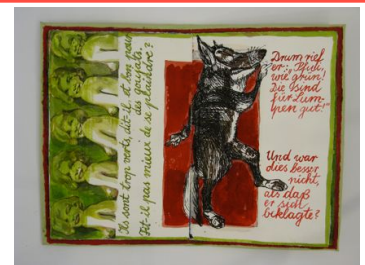 Ils sont trop verts, dit-il, et bon pour
des goujats.
Fit-il pas mieux de se plaindre?
Drum rief
er: "Pfui,
wie grün!
Die sind
für Lum-
pen gut!"
Und war
dies besser
nicht,
als daß
er sich
beklagte?